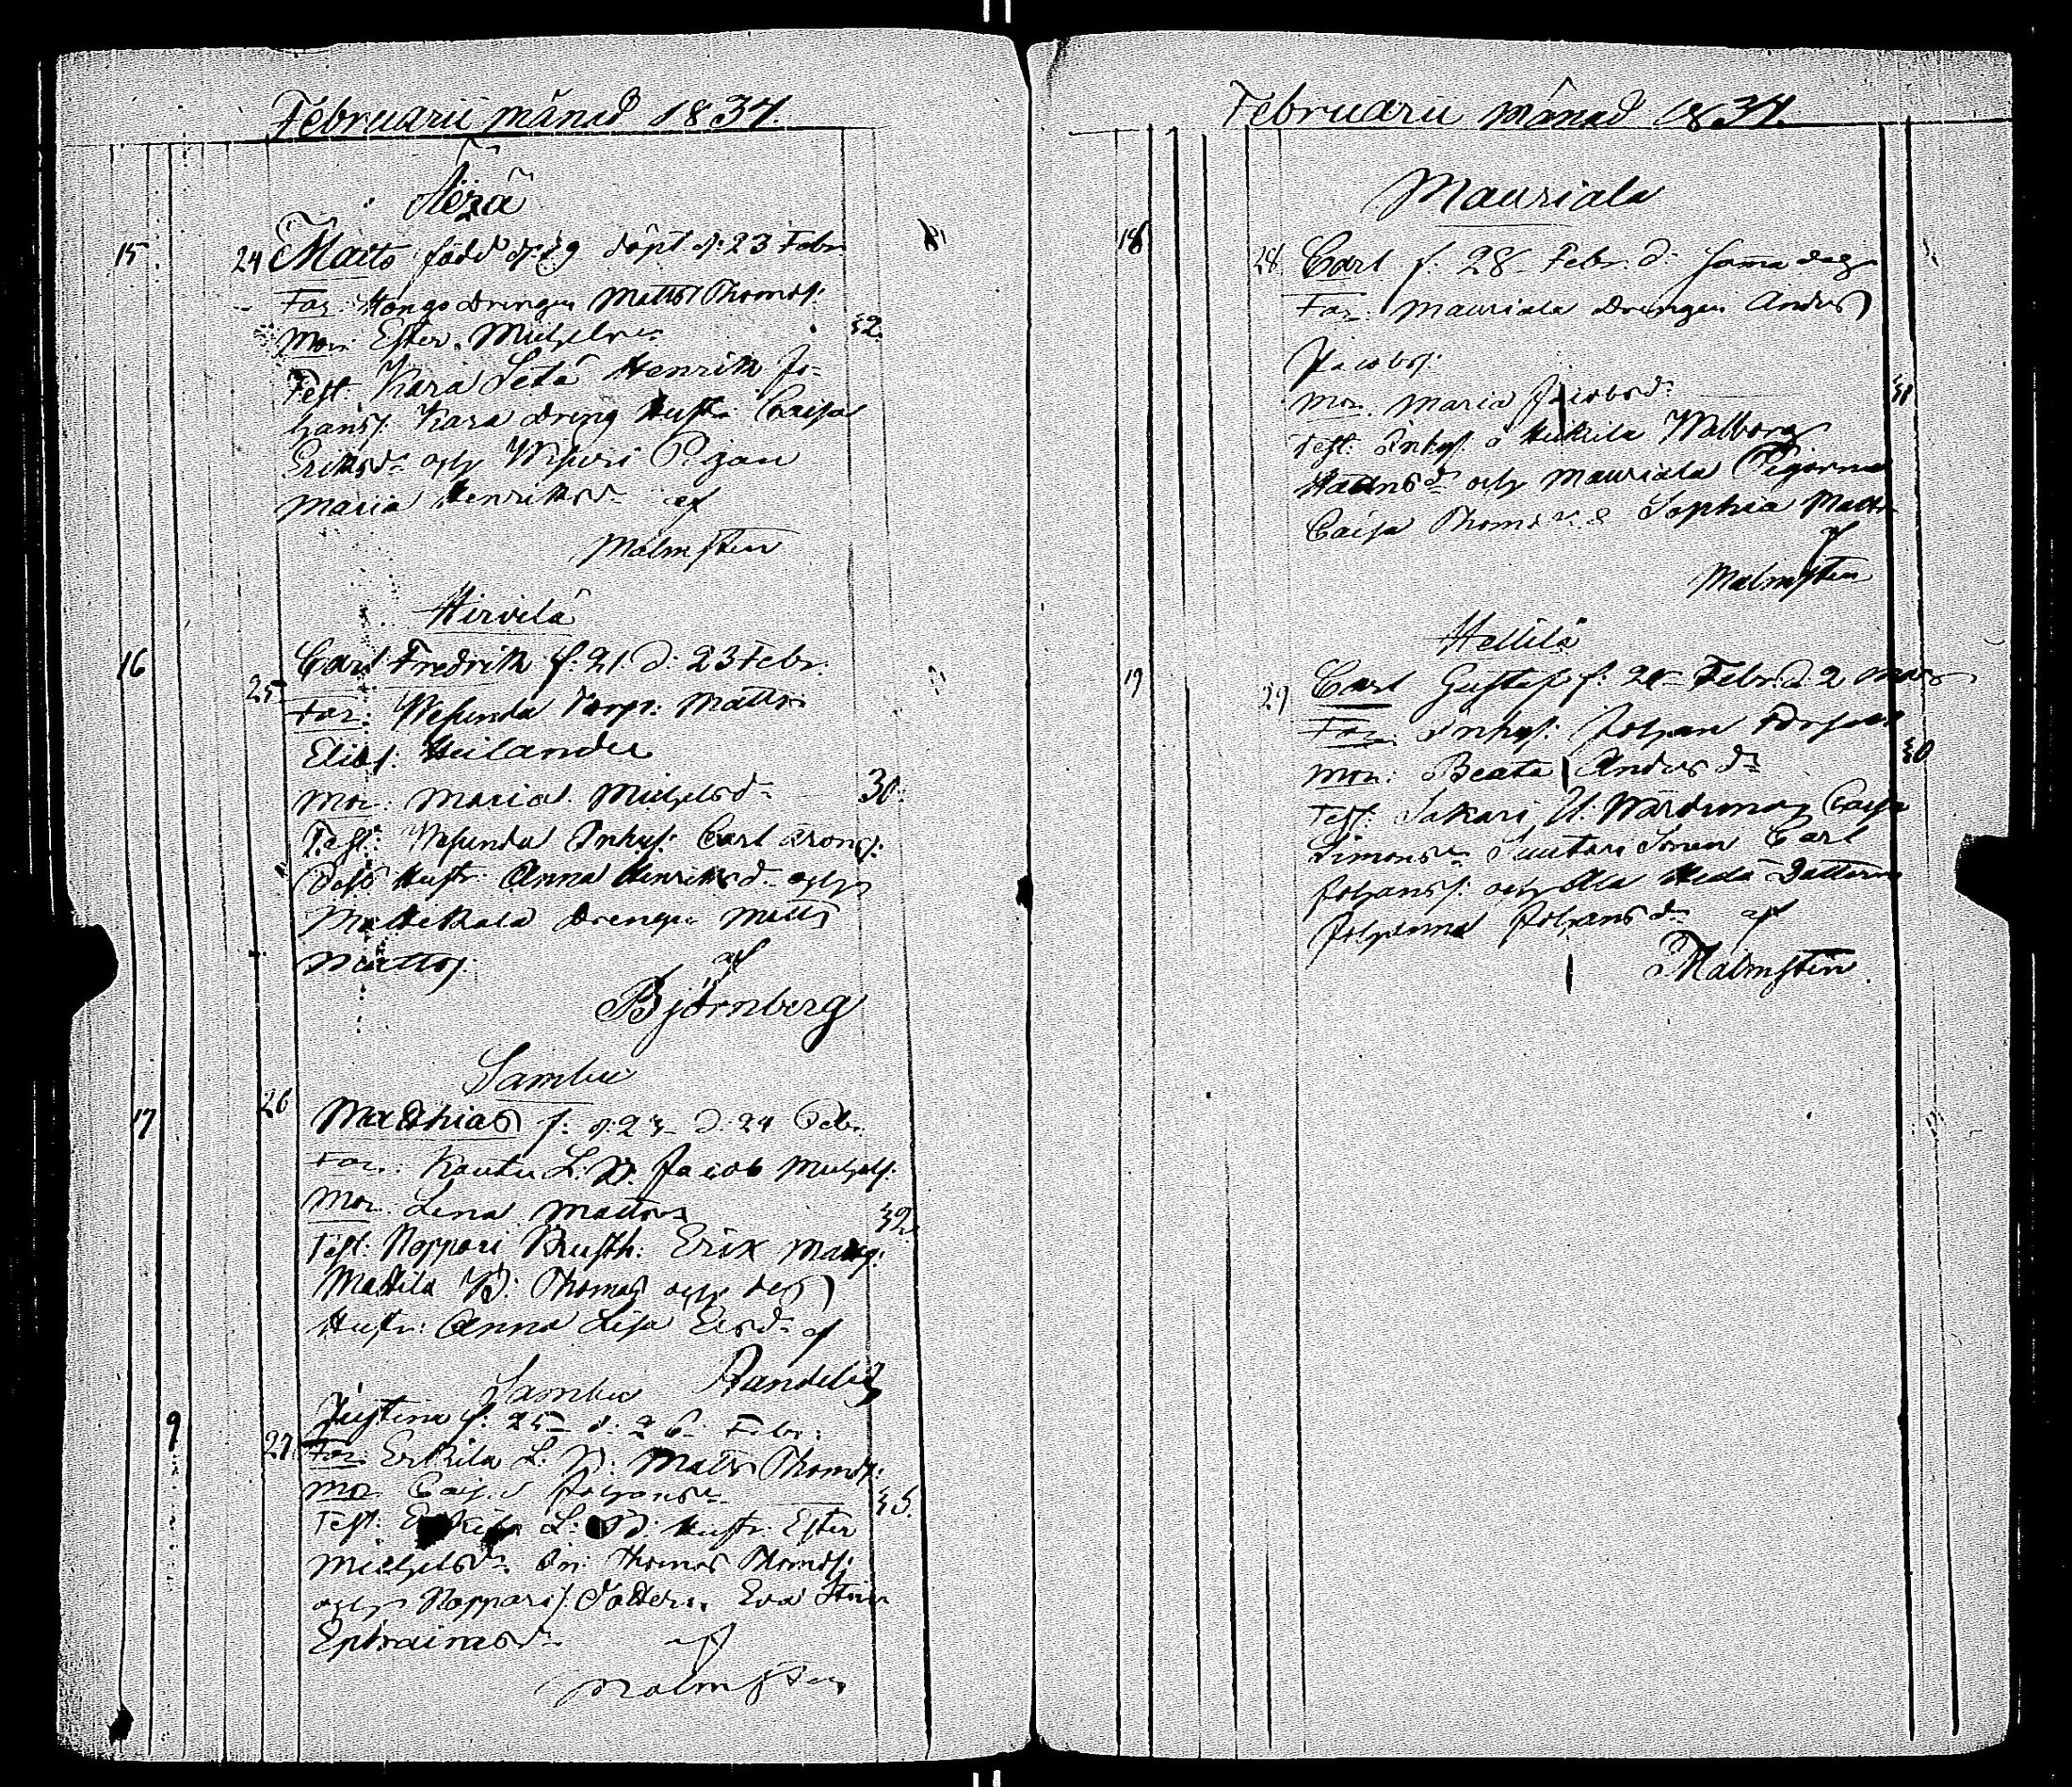 Februarii månad 1834.
15 24 Matts född d: 19 döpt d: 23 Febr.
Far: Hongo Drengen Matts Thomass:
Mor: Ester Michelsdr 32.
Test: Kara Henrik Jo-
hanss: Kara Dreng Hustr: Caisa
Eriksdr och Pigan
Maria Henriksdr af
Malmsten
Hirvilä
16 25 Carl Fredrik f: 21 d: 23 Febr.
Far: Wesunda Torp: Matts
Elias: Heilander
Mor: Maria Michelsd: 30.
Test: Wesunda Inhys: Carl Arons:
Dess Hustr: Anna Henriksd: och
Drengen Matts
Mattss: af
Björnberg
Sambu
17 26 Mathias f: d: 23 d: 24 Febr.
Far: Rautu L: B. Jacob Michels:
Mor: Lena Mattsdr 32.
Test: Noppari Erik
Mattila B: Thomas och dess
Hustr: Anna Lisa Ersdr af
Randelin
Sambu
Justina f: 25 d: 26 Febr:
9 27 Far: Erkkila L: B: Matts Thomass:
Mor: Caisa Johansdr 35.
Test: L: B: Hustr: Ester
Michelsdr Thomas Thomass:
och Noppari Dottern Eva Stina
Ephraimsdr af
Malmsten
Februarii månad 1834.
Mauriala
18 28 Carl f: 28 Febr. d: samma dag
Far: Mauriala Drengen Anders
Jacobs:
Mor: Maria Jacobsdr 31
Test: Inhys: å Heikkila Walborg
Hansdr och Mauriala Pigorna
Caisa Thomsdr & Sophia Matts
af
Malmsten
Hellilä
19 29 Carl Gustaf f: Febr. d: 2 Mars
Far: Inhys: Johan
Mor: Beata Andersdr 30
Test: Sakari U. Caisa
Simonsdr Suutari Sonen Carl
Johanss: och Dottern
Johanna Johansdr af
Malmsten.